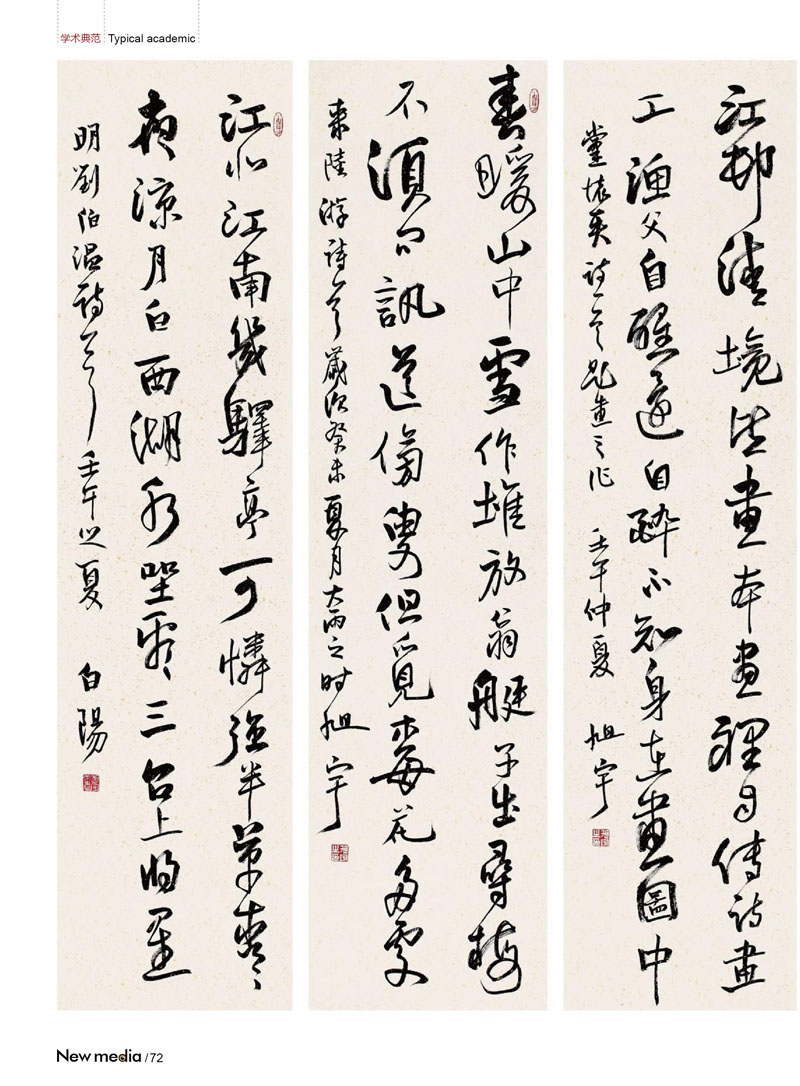 学术典范 Typical academic
江邨清境皆畫本畫裡傳詩畫
工漁父自醒還自醉不知身在畫圖中
黨懷英詩一首題畫之作 壬午仲夏 旭宇
春暖山中雪作堆放翁艇子出尋梅
不須問訊道傍叟但覓梅花多處
來陸游詩一首歲次癸未夏月大雨之時旭宇
江北江南幾驛亭可憐強半草青々
夜涼月白西湖水坐看三台上將星
明劉伯溫詩一首 壬午之夏 白陽
New media /72